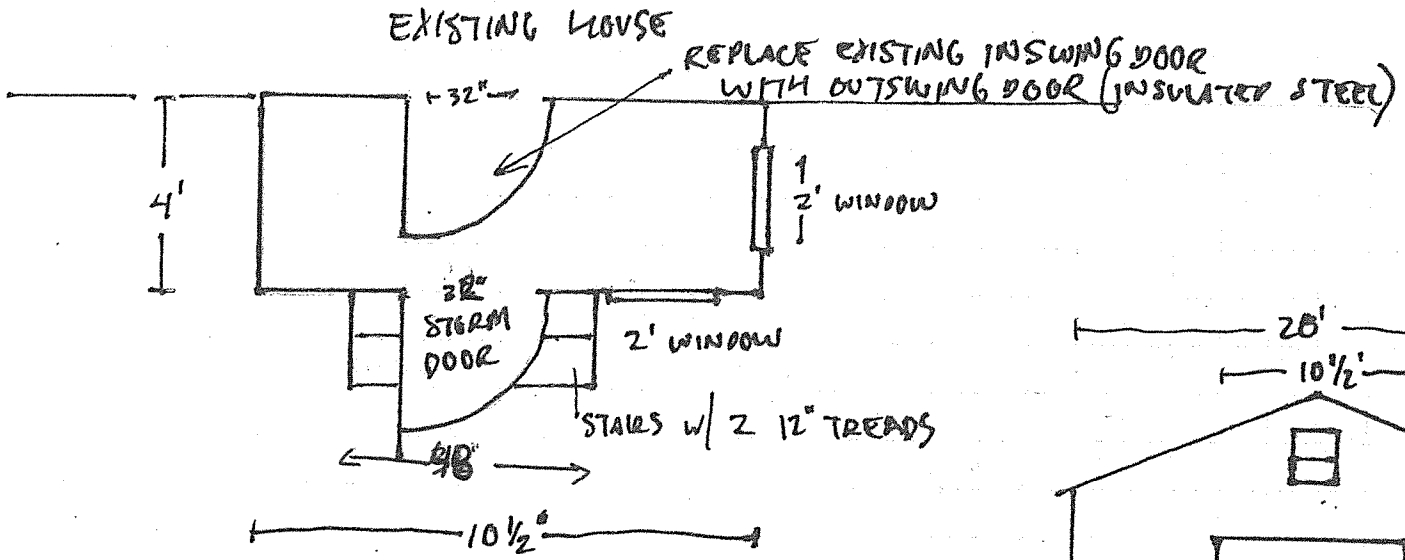 EXISTING HOUSE
REPLACE EXISTING INSWING DOOR
WITH OUTSWING DOOR (INSULATED STEEL)
32"
4'
2' WINDOW
STORM
DOOR
2' WINDOW
STAIRS W/ 2 12" TREADS
10 1/2'
28'
10 1/2'